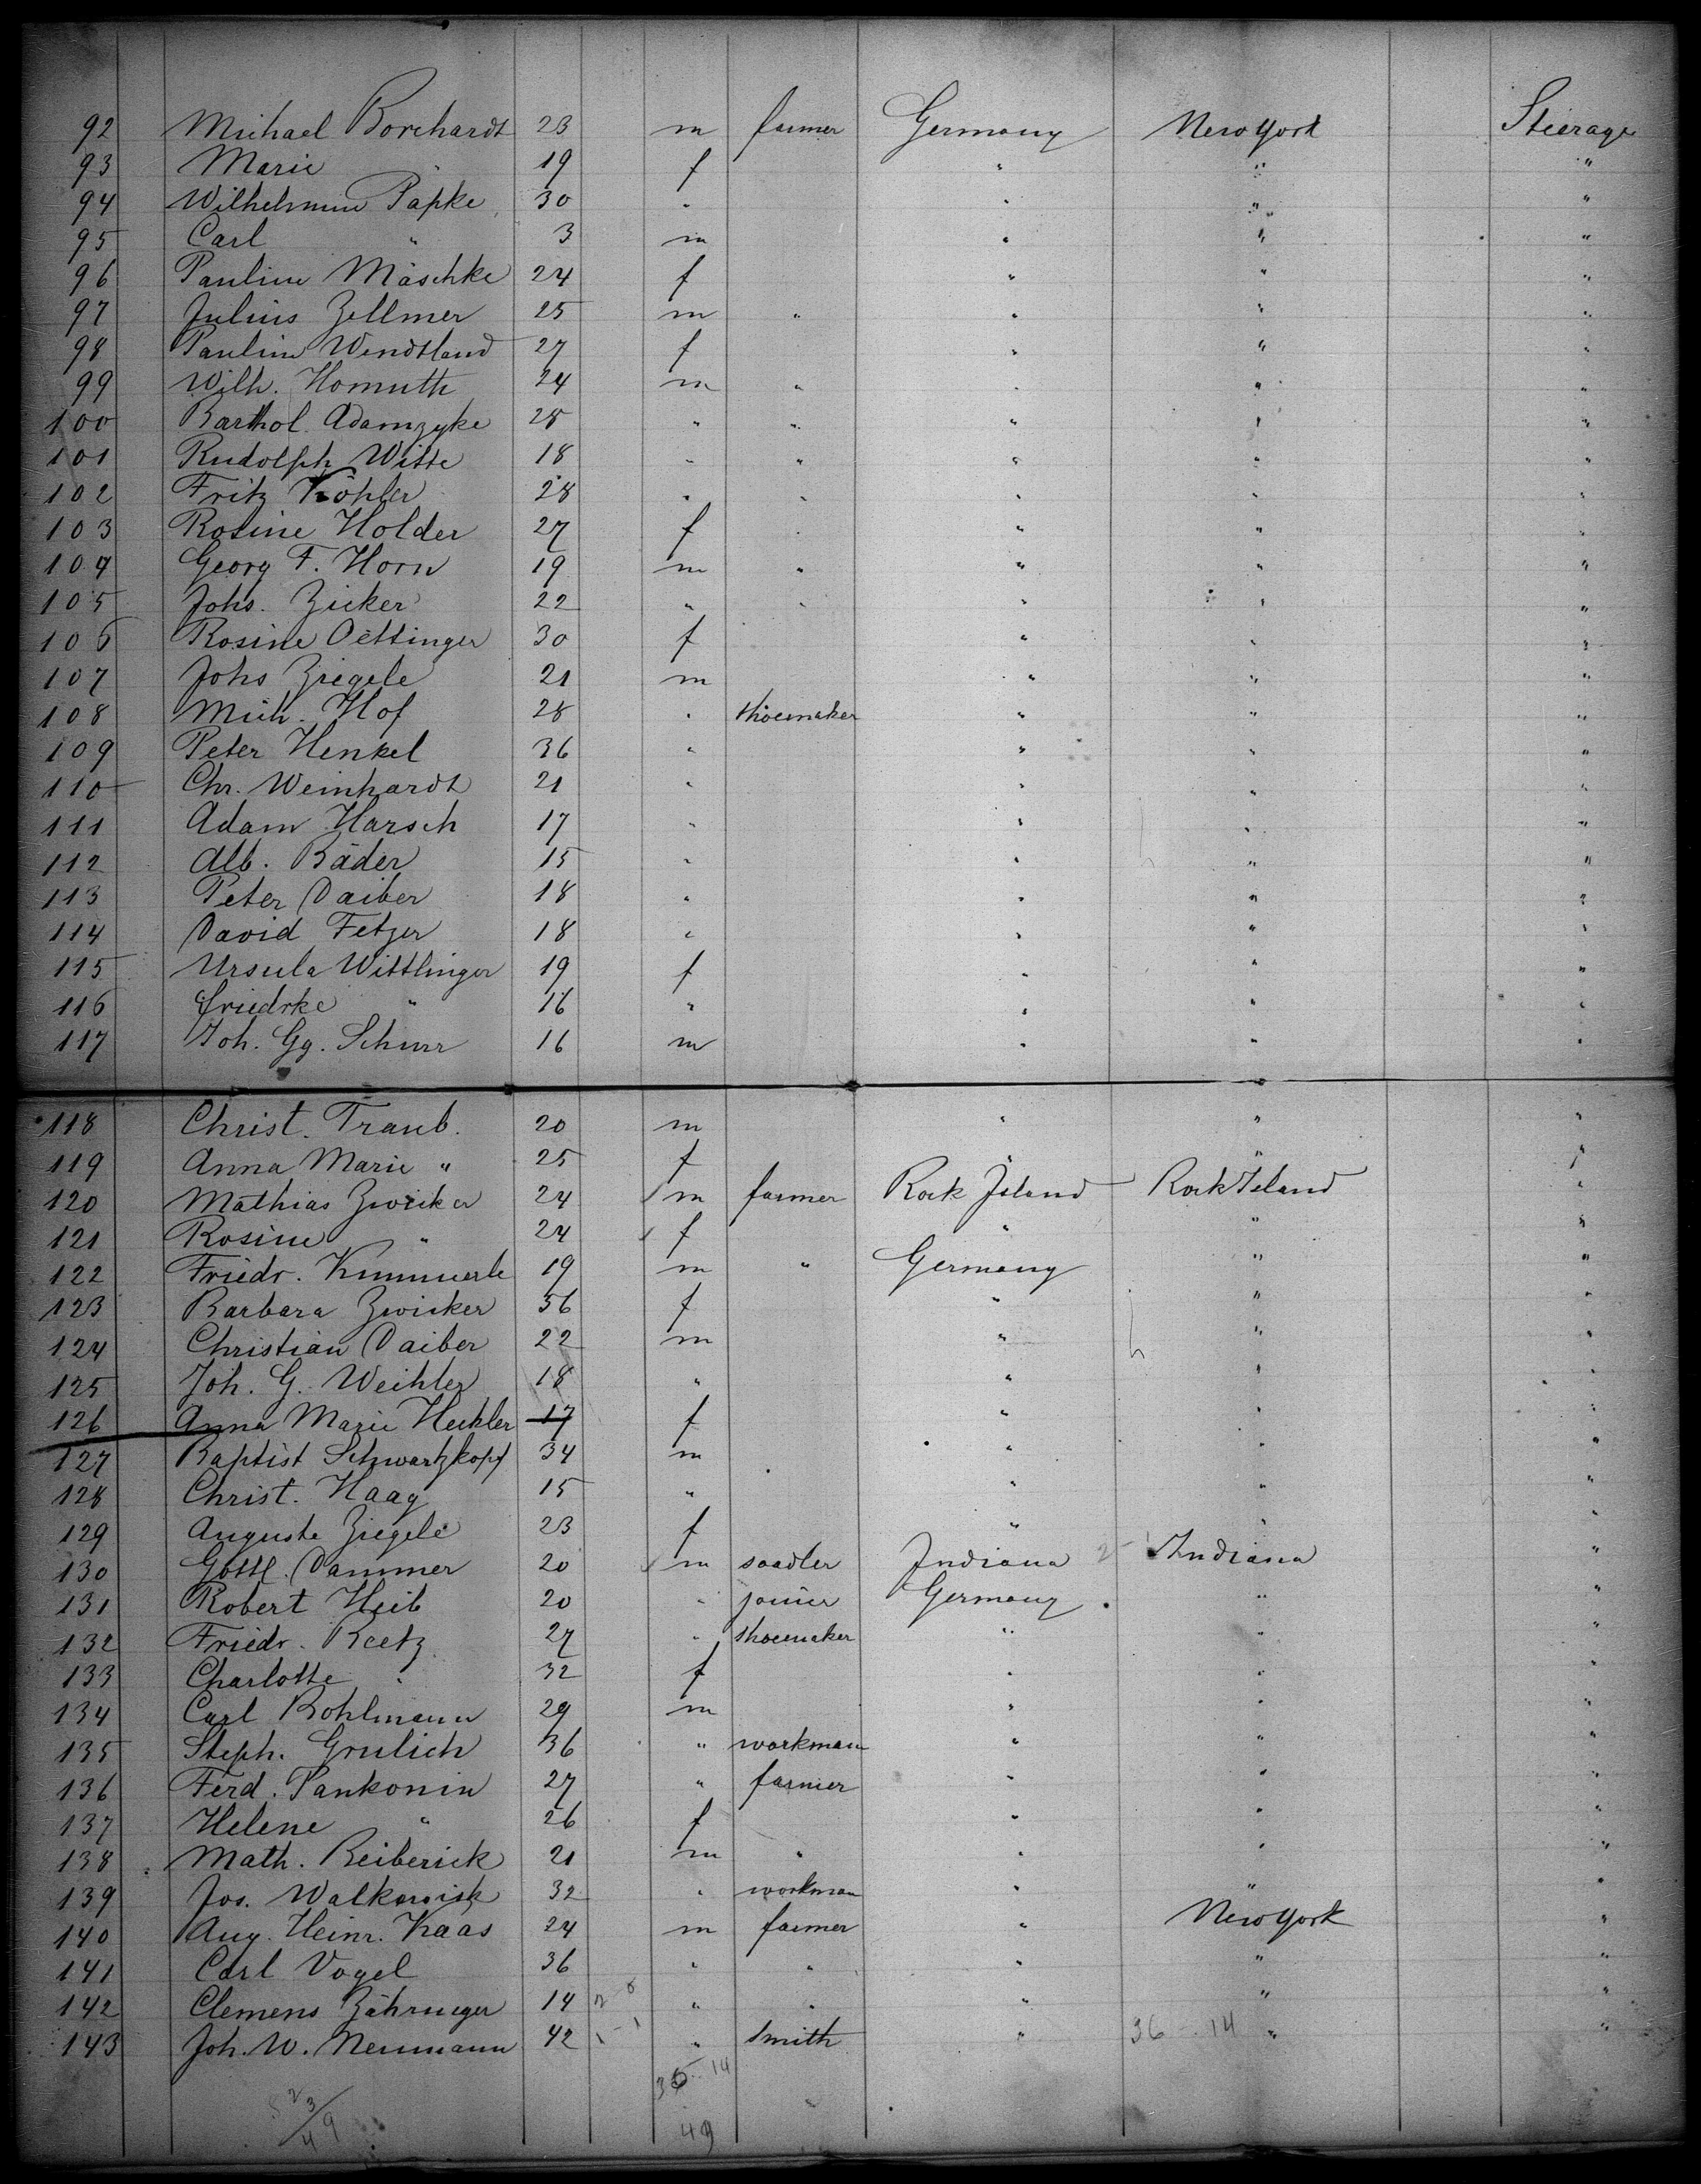 92 Michael Borchardt 23 m farmer Germany New York Steerage
93 Marie " 19 f " " "
94 Wilhelmine Papke 30 " " " "
95 Carl " 3 m " " "
96 Pauline Mäschke 24 f " " "
97 Julius Zellmer 25 m " " " "
98 Pauline Wendtland 27 f " " "
99 Wilh. Homuth 24 m " " " "
100 Barthol. Adamzyke 28 " " " " "
101 Rudolph Witte 18 " " " " "
102 Fritz Köhler 28 " " " " "
103 Rosine Holder 27 f " " " "
104 Georg F. Horn 19 m " " " "
105 Johs. Zicker 22 " " " " "
106 Rosine Oettinger 30 f " " "
107 Johs Ziegele 21 m " " "
108 Mich. Hof 28 " shoemaker " " "
109 Peter Henkel 36 " " " "
110 Chr. Weinhardt 21 " " " "
111 Adam Harsch 17 " " " "
112 Alb. Bäder 15 " " " "
113 Peter Daiber 18 " " " "
114 David Fetzer 18 " " " "
115 Ursula Wittlinger 19 f " " "
116 Friedrke " 16 " " " "
117 Joh. Gg. Schurr 16 m " " "
118 Christ. Traub. 20 m " " "
119 Anna Marie " 25 f " " "
120 Mathias Zwicker 24 m farmer Rock Island Rock Island "
121 Rosine " 24 f " " "
122 Friedr. Kummerle 19 m " Germany " "
123 Barbara Zwicker 56 f " " "
124 Christian Daiber 22 m " " "
125 Joh. G. Weihler 18 " " " "
126 Anna Marie Heckler 17 f " " "
127 Baptist Schwartzkopf 34 m " " "
128 Christ. Haag 15 " " " "
129 Auguste Ziegele 23 f " " "
130 Gottl. Dammer 20 m saadler Indiana Indiana "
131 Robert Heib 20 " joiner Germany " "
132 Friedr. Reetz 27 " shoemaker " " "
133 Charlotte " 32 f " " "
134 Carl Bohlmann 29 m " " "
135 Steph. Grulich 36 " workman " " "
136 Ferd. Pankonin 27 " farmer " " "
137 Helene " 26 f " " "
138 Math. Beiberick 21 m " " " "
139 Jos. 32 " workman " " "
140 Aug. Heinr. Kaas 24 m farmer " New York "
141 Carl Vogel 36 " " " " "
142 Clemens Zähringer 14 " " " " "
143 Joh. W. Neumann 42 " Smith " 36 - 14 " "
14
49